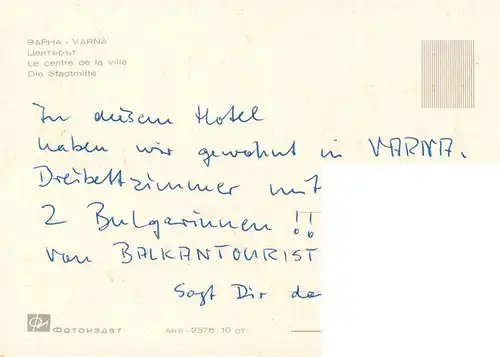 ВАРНА - VARNA
Центърът
Le centre de la ville
Die Stadtmitte
In diesem Hotel
haben wir gewohnt in VARNA.
Dreibettzimmer mit
2 Bulgarinnen !!
von BALKANTOURIST
Sagt Dir da
Фотоиздат Акл-2376/10 ст.